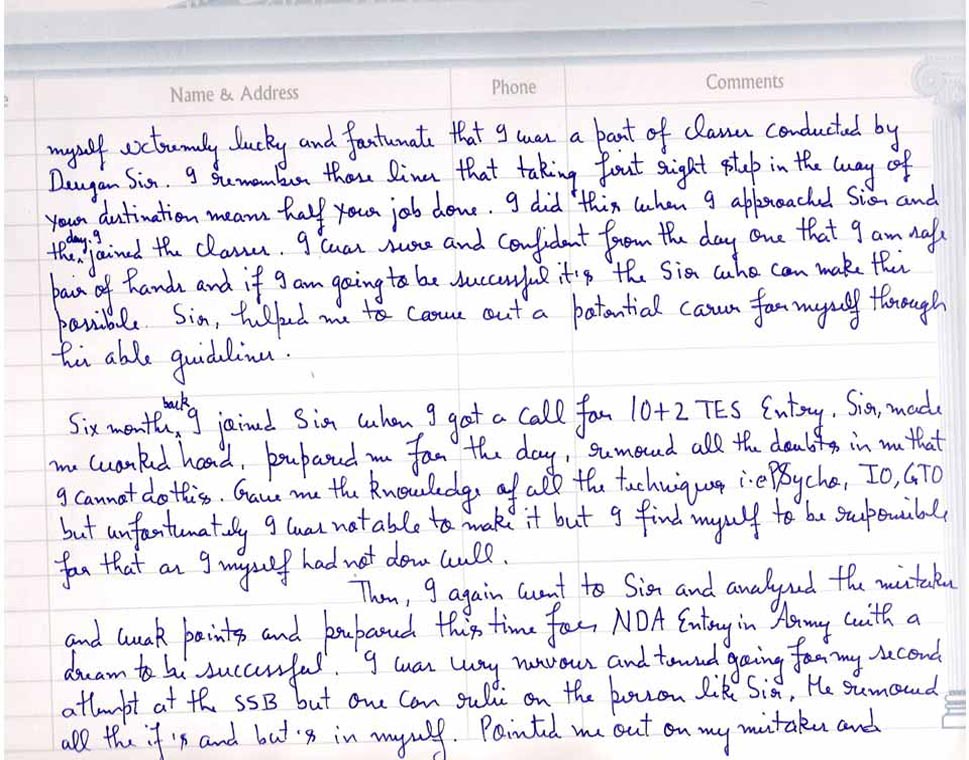 Name & Address Phone Comments
myself extremely lucky and fortunate that I was a part of classes conducted by
Dewgan Sir. I remember those lines that taking first right step in the way of
your destination means half your job done. I did this when I approached Sir and
the day I joined the classes. I was sure and confident from the day one that I am safe
pair of hands and if I am going to be successful it's the Sir who can make this
possible. Sir, helped me to carve out a potential career for myself through
his able guidelines.
Six months back I joined Sir when I got a call for 10+2 TES Entry. Sir, made
me worked hard, prepared me for the day, removed all the doubts in me that
I cannot do this. Gave me the knowledge of all the techniques i.e PSycho, IO, GTO
but unfortunately I was not able to make it but I find myself to be responsible
for that as I myself had not done well.
Then, I again went to Sir and analysed the mistakes
and weak points and prepared this time for NDA Entry in Army with a
dream to be successful. I was very nervous and tensed going for my second
attempt at the SSB but one can relie on the person like Sir. He removed
all the if's and but's in myself. Pointed me out on my mistakes and